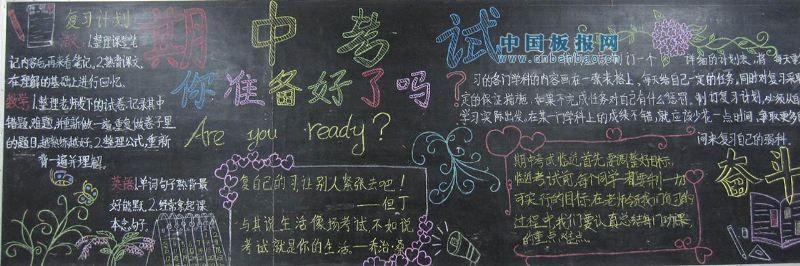 复习计划
期中考试
中国板报网
www.cnbanbao.cn
你准备好了吗?
Are you ready?
语文:1.整理课堂笔
记内容后,再来看笔记,2.熟背课文,
在理解的基础上进行回忆。
数学:1.整理老师发下的试卷,记录其中
错题、难题,并重新做一遍,重复做卷子里
的题目,越熟练越好。2.整理公式,重新
背一遍并理解。
英语:1.单词句子熟背最
好能默,2.经常拿起课
本念句子,
复自己的习,让别人紧张去吧!
——但丁
与其说生活像场考试,不如说
考试就是你的生活——乔治·桑
们一个详细的计划表,将每天要
习的各门学科的内容画在一张表格上,每天给自己一定的任务,同时对复习采
定的保证措施,如果不完成任务对自己有什么惩罚。制订复习计划,必须从自
学习实际出发,在某一个学科上的成绩不错,就应该少花一点时间,争取更多
间来复习自己的弱科。
期中考试临近,首先要调整好目标,
临近考试前,每个同学一定要制一切
可实行的目标,在老师带领我们复习的
过程中,我们要认真总结每门功课
的重点、难点。
奋斗